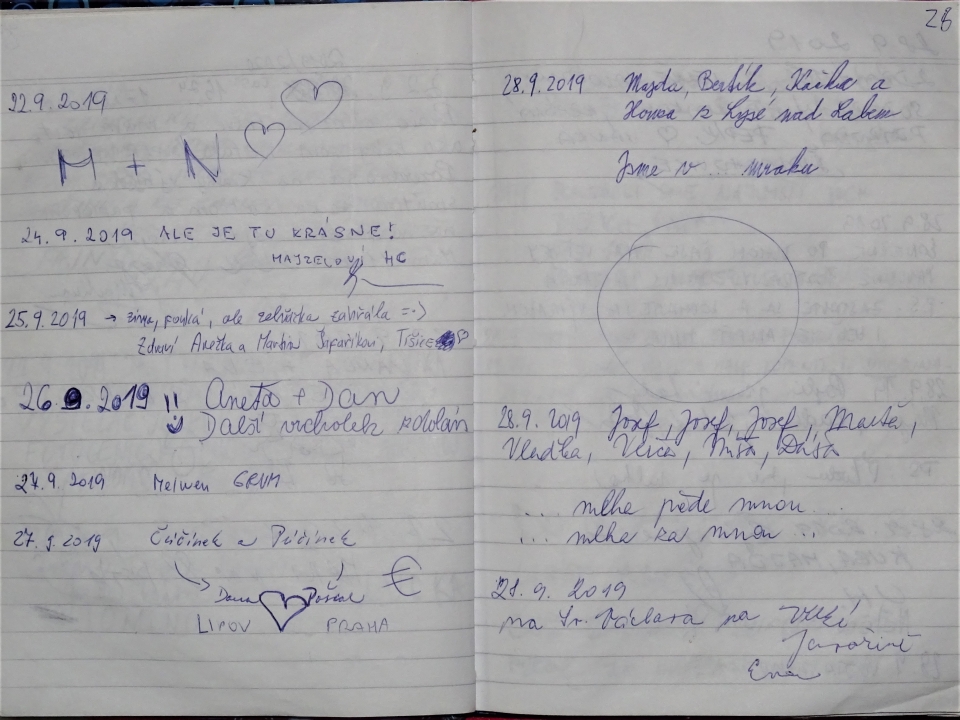 22.9.2019
M + N
24.9.2019 ALE JE TU KRÁSNE!
25.9.2019 → zima, fouká, ale zahřála =)
Zdraví Anežka a Martin Tršice
26.9.2019 !! Aneta + Dan
Další vrcholek zdolán
27.9.2019 Meiwen GRVM
27.9.2019 Čičínek a Pičínek
Dana
LIPOV PRAHA
€
28
28.9.2019 Majda, Bertík, Kačka a
Honza z Lysé nad Labem
Jsme v... mraku
28.9.2019 Josef, Josef, Josef,
Vlaďka, Míša, Dáša
... mlha přede mnou...
... mlha za mnou ..
28.9.2019
na Sv. Václava na Velké
Javořině
Eva